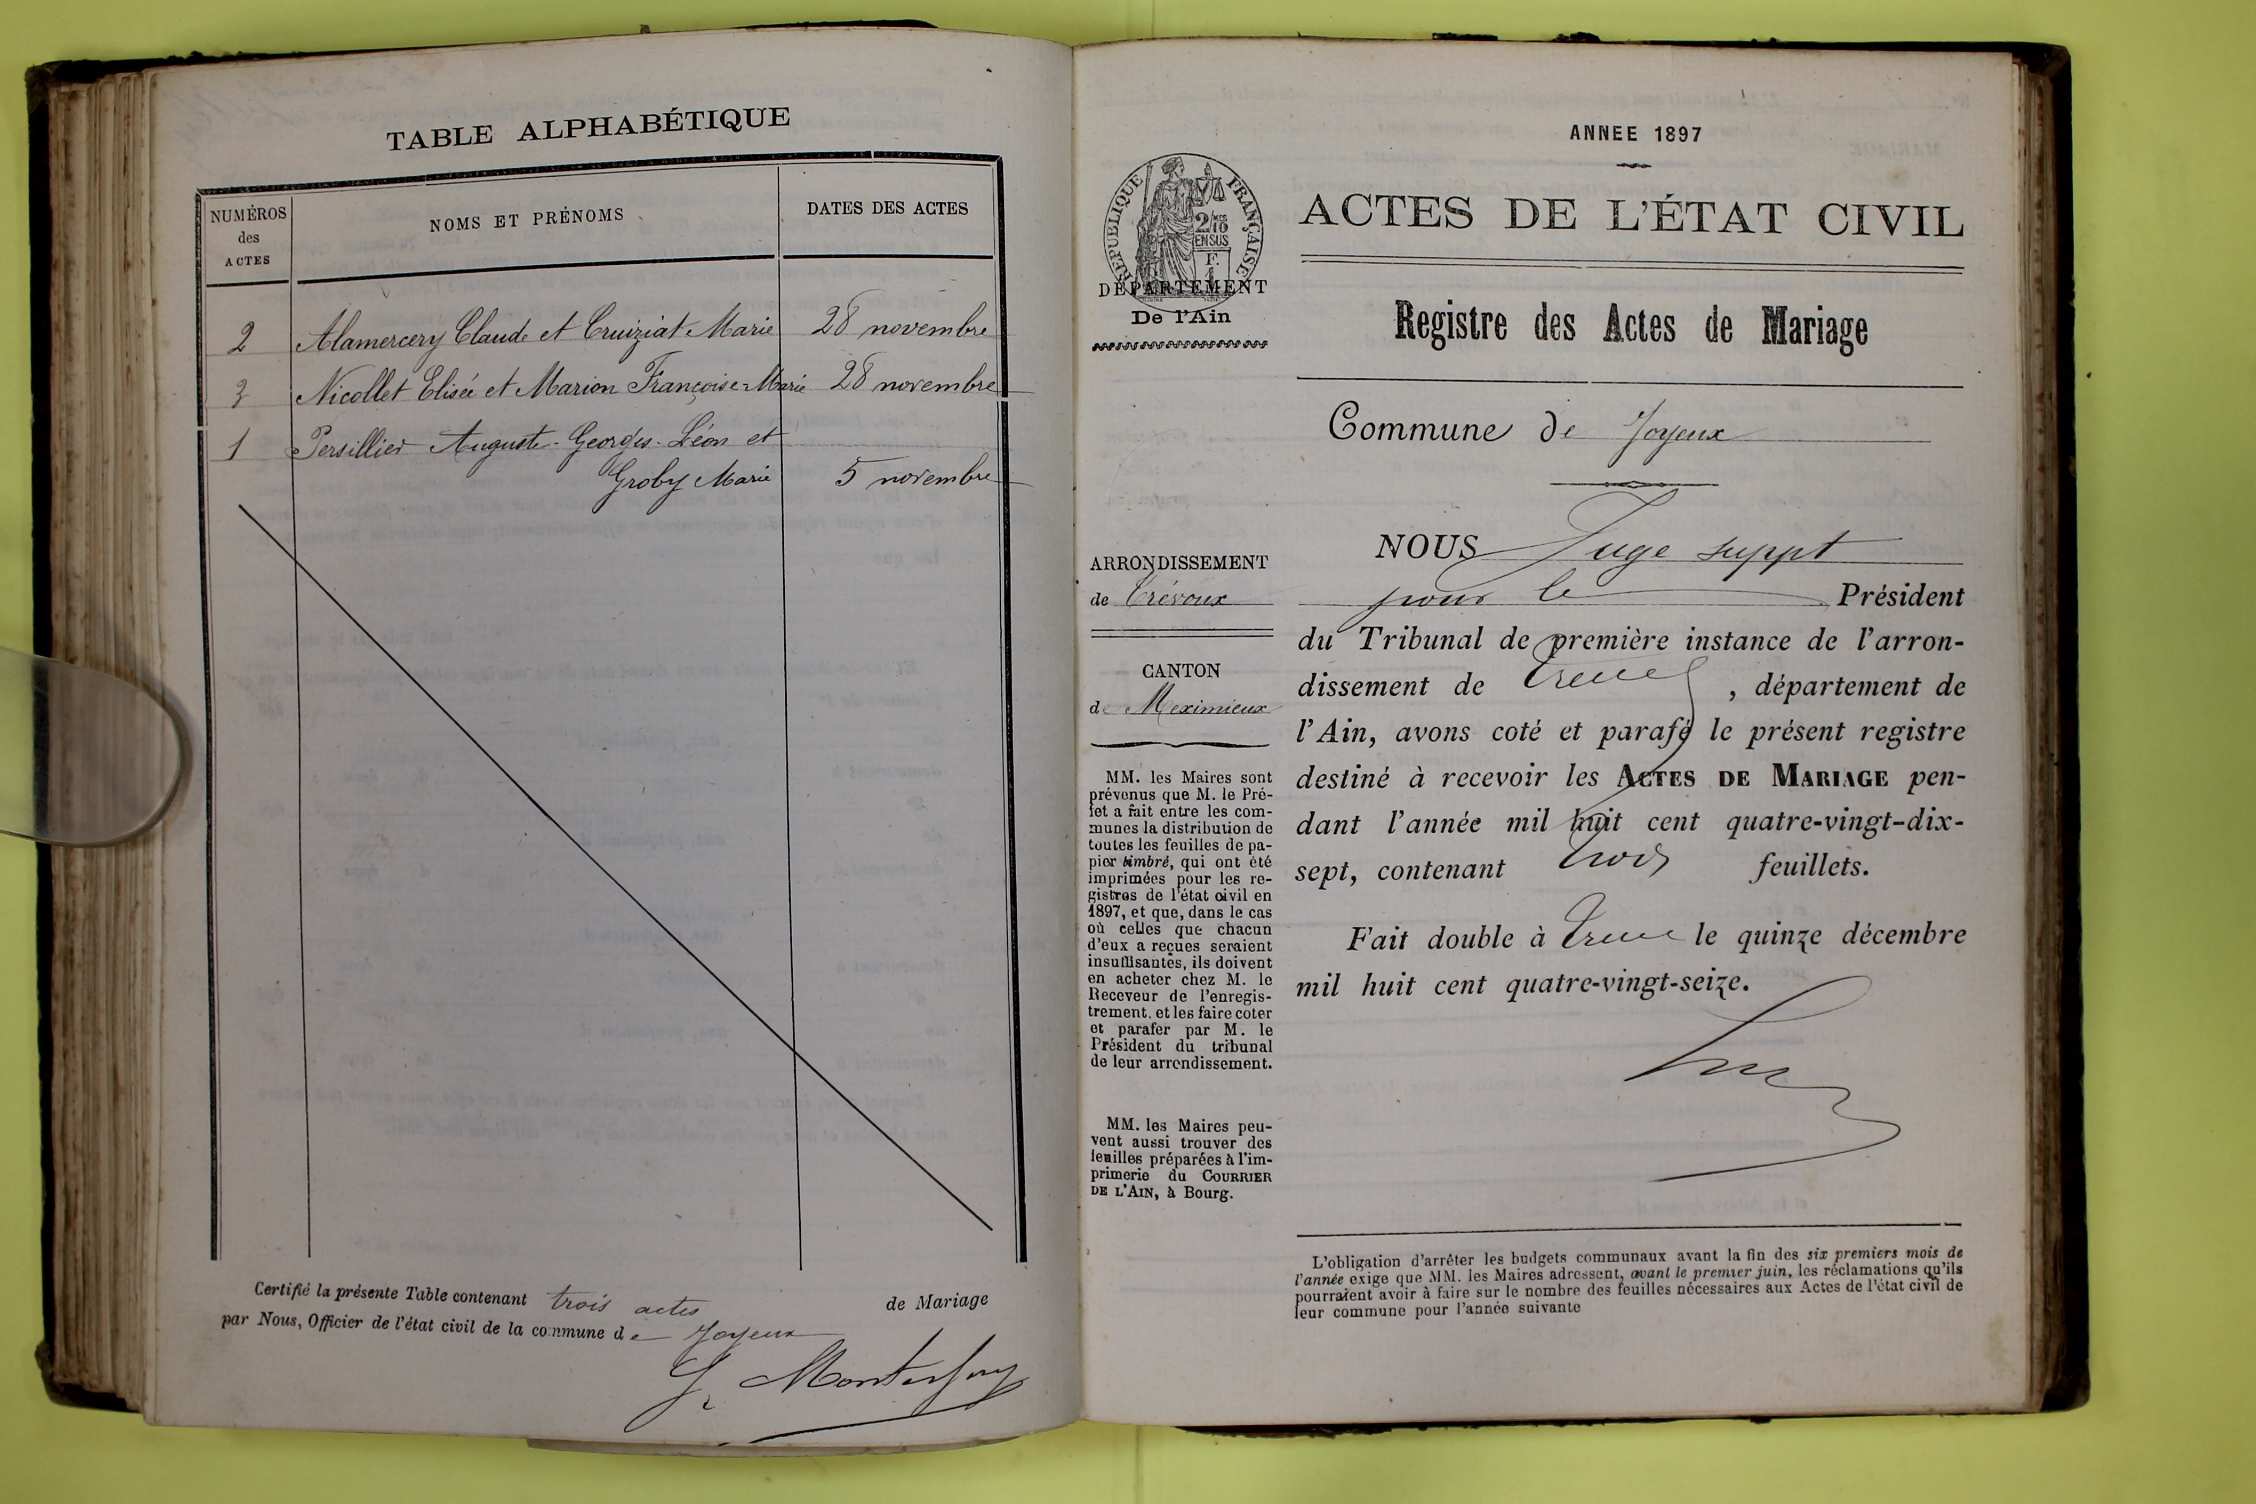 TABLE ALPHABÉTIQUE
NUMÉROS
des
ACTES
NOMS ET PRÉNOMS
DATES DES ACTES
2 Alamercery Claude et Cruiziat Marie 28 novembre
3 Nicollet Elisée et Marion Françoise-Marie 28 novembre
1 Persillier Auguste-Georges-Léon et
Groby Marie 5 novembre
Certifié la présente Table contenant trois actes de Mariage
par Nous, Officier de l'état civil de la commune de Joyeux
ANNEE 1897
RÉPUBLIQUE FRANÇAISE
2/10
EN SUS
F.
1
DÉPARTEMENT
De l'Ain
ARRONDISSEMENT
de Trévoux
CANTON
de Meximieux
MM. les Maires sont
prévenus que M. le Pré-
fet a fait entre les com-
munes la distribution de
toutes les feuilles de pa-
pier timbré, qui ont été
imprimées pour les re-
gistres de l'état civil en
1897, et que, dans le cas
où celles que chacun
d'eux a reçues seraient
insuffisantes, ils doivent
en acheter chez M. le
Receveur de l'enregis-
trement. et les faire coter
et parafer par M. le
Président du tribunal
de leur arrondissement.
MM. les Maires peu-
vent aussi trouver des
feuilles préparées à l'im-
primerie du COURRIER
DE L'AIN, à Bourg.
ACTES DE L'ÉTAT CIVIL
Registre des Actes de Mariage
Commune de Joyeux
NOUS Juge suppt
pour le Président
du Tribunal de première instance de l'arron-
dissement de , département de
l'Ain, avons coté et parafé le présent registre
destiné à recevoir les ACTES DE MARIAGE pen-
dant l'année mil huit cent quatre-vingt-dix-
sept, contenant trois feuillets.
Fait double à le quinze décembre
mil huit cent quatre-vingt-seize.
L'obligation d'arrêter les budgets communaux avant la fin des six premiers mois de
l'année exige que MM. les Maires adressent, avant le premier juin, les réclamations qu'ils
pourraient avoir à faire sur le nombre des feuilles nécessaires aux Actes de l'état civil de
leur commune pour l'année suivante